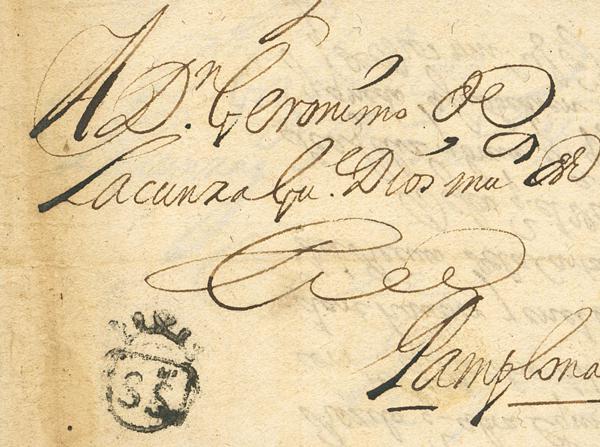 A Dn Geronimo de
Lacunza Gue Dios mu as
Pamplona
SS